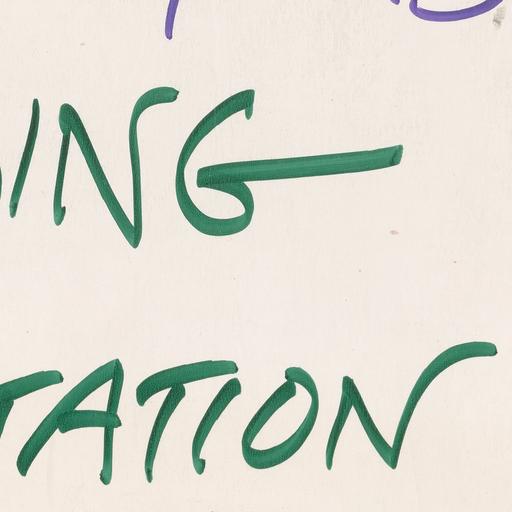 ING
TATION